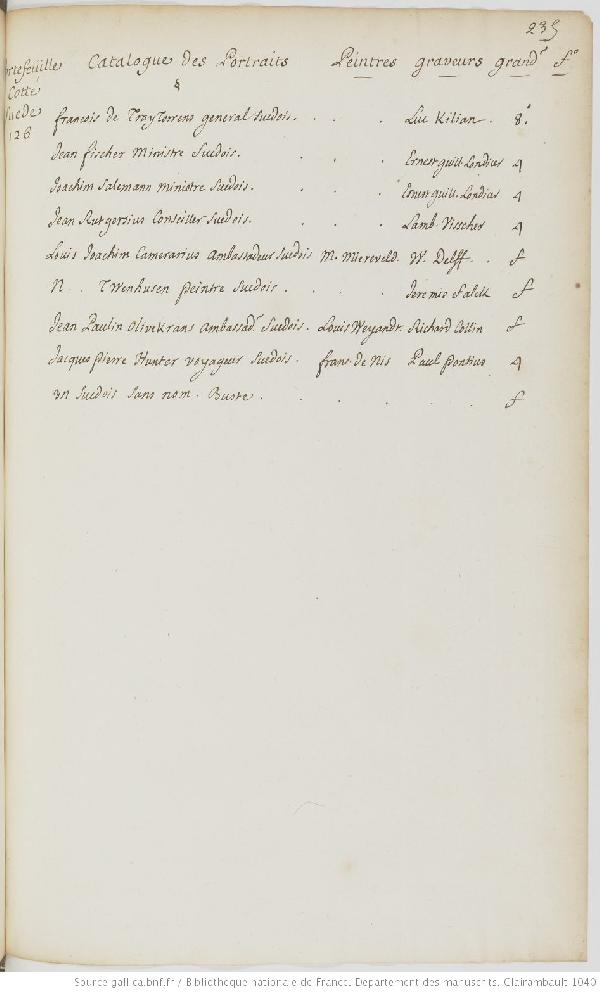 235
Portefeuille Catalogue des Portraits Peintres graveurs grandr fo
Cotté
Suede
126
françois de Troytorrens general Suedois. . . . Luc Kilian. 8.o
Jean fischer Ministre Suedois. . . . Ernest guill Londius 4
Joachim Salemann ministre Suedois. . . . Ernest guill. Londius 4
Jean Rutgersius Conseiller Suedois. . . . Lamb. Visscher 4
Louis Joachim Camerarius Ambassadeur Suedois M. Miereveld. W. Delff. . f
N. . Twenhusen peintre Suedois . . . . Jeremie Falck f
Jean Paulin OliveKrans Ambassad.r Suedois. Louis Weyandt. Richard Collin f
Jacque pierre Hunter voyageur Suedois. franc. de Nis Paul pontius 4
un Suedois Sans nom. Buste. . . . . . f
Source gallica.bnf.fr / Bibliothèque nationale de France. Département des manuscrits. Clairambault 1040